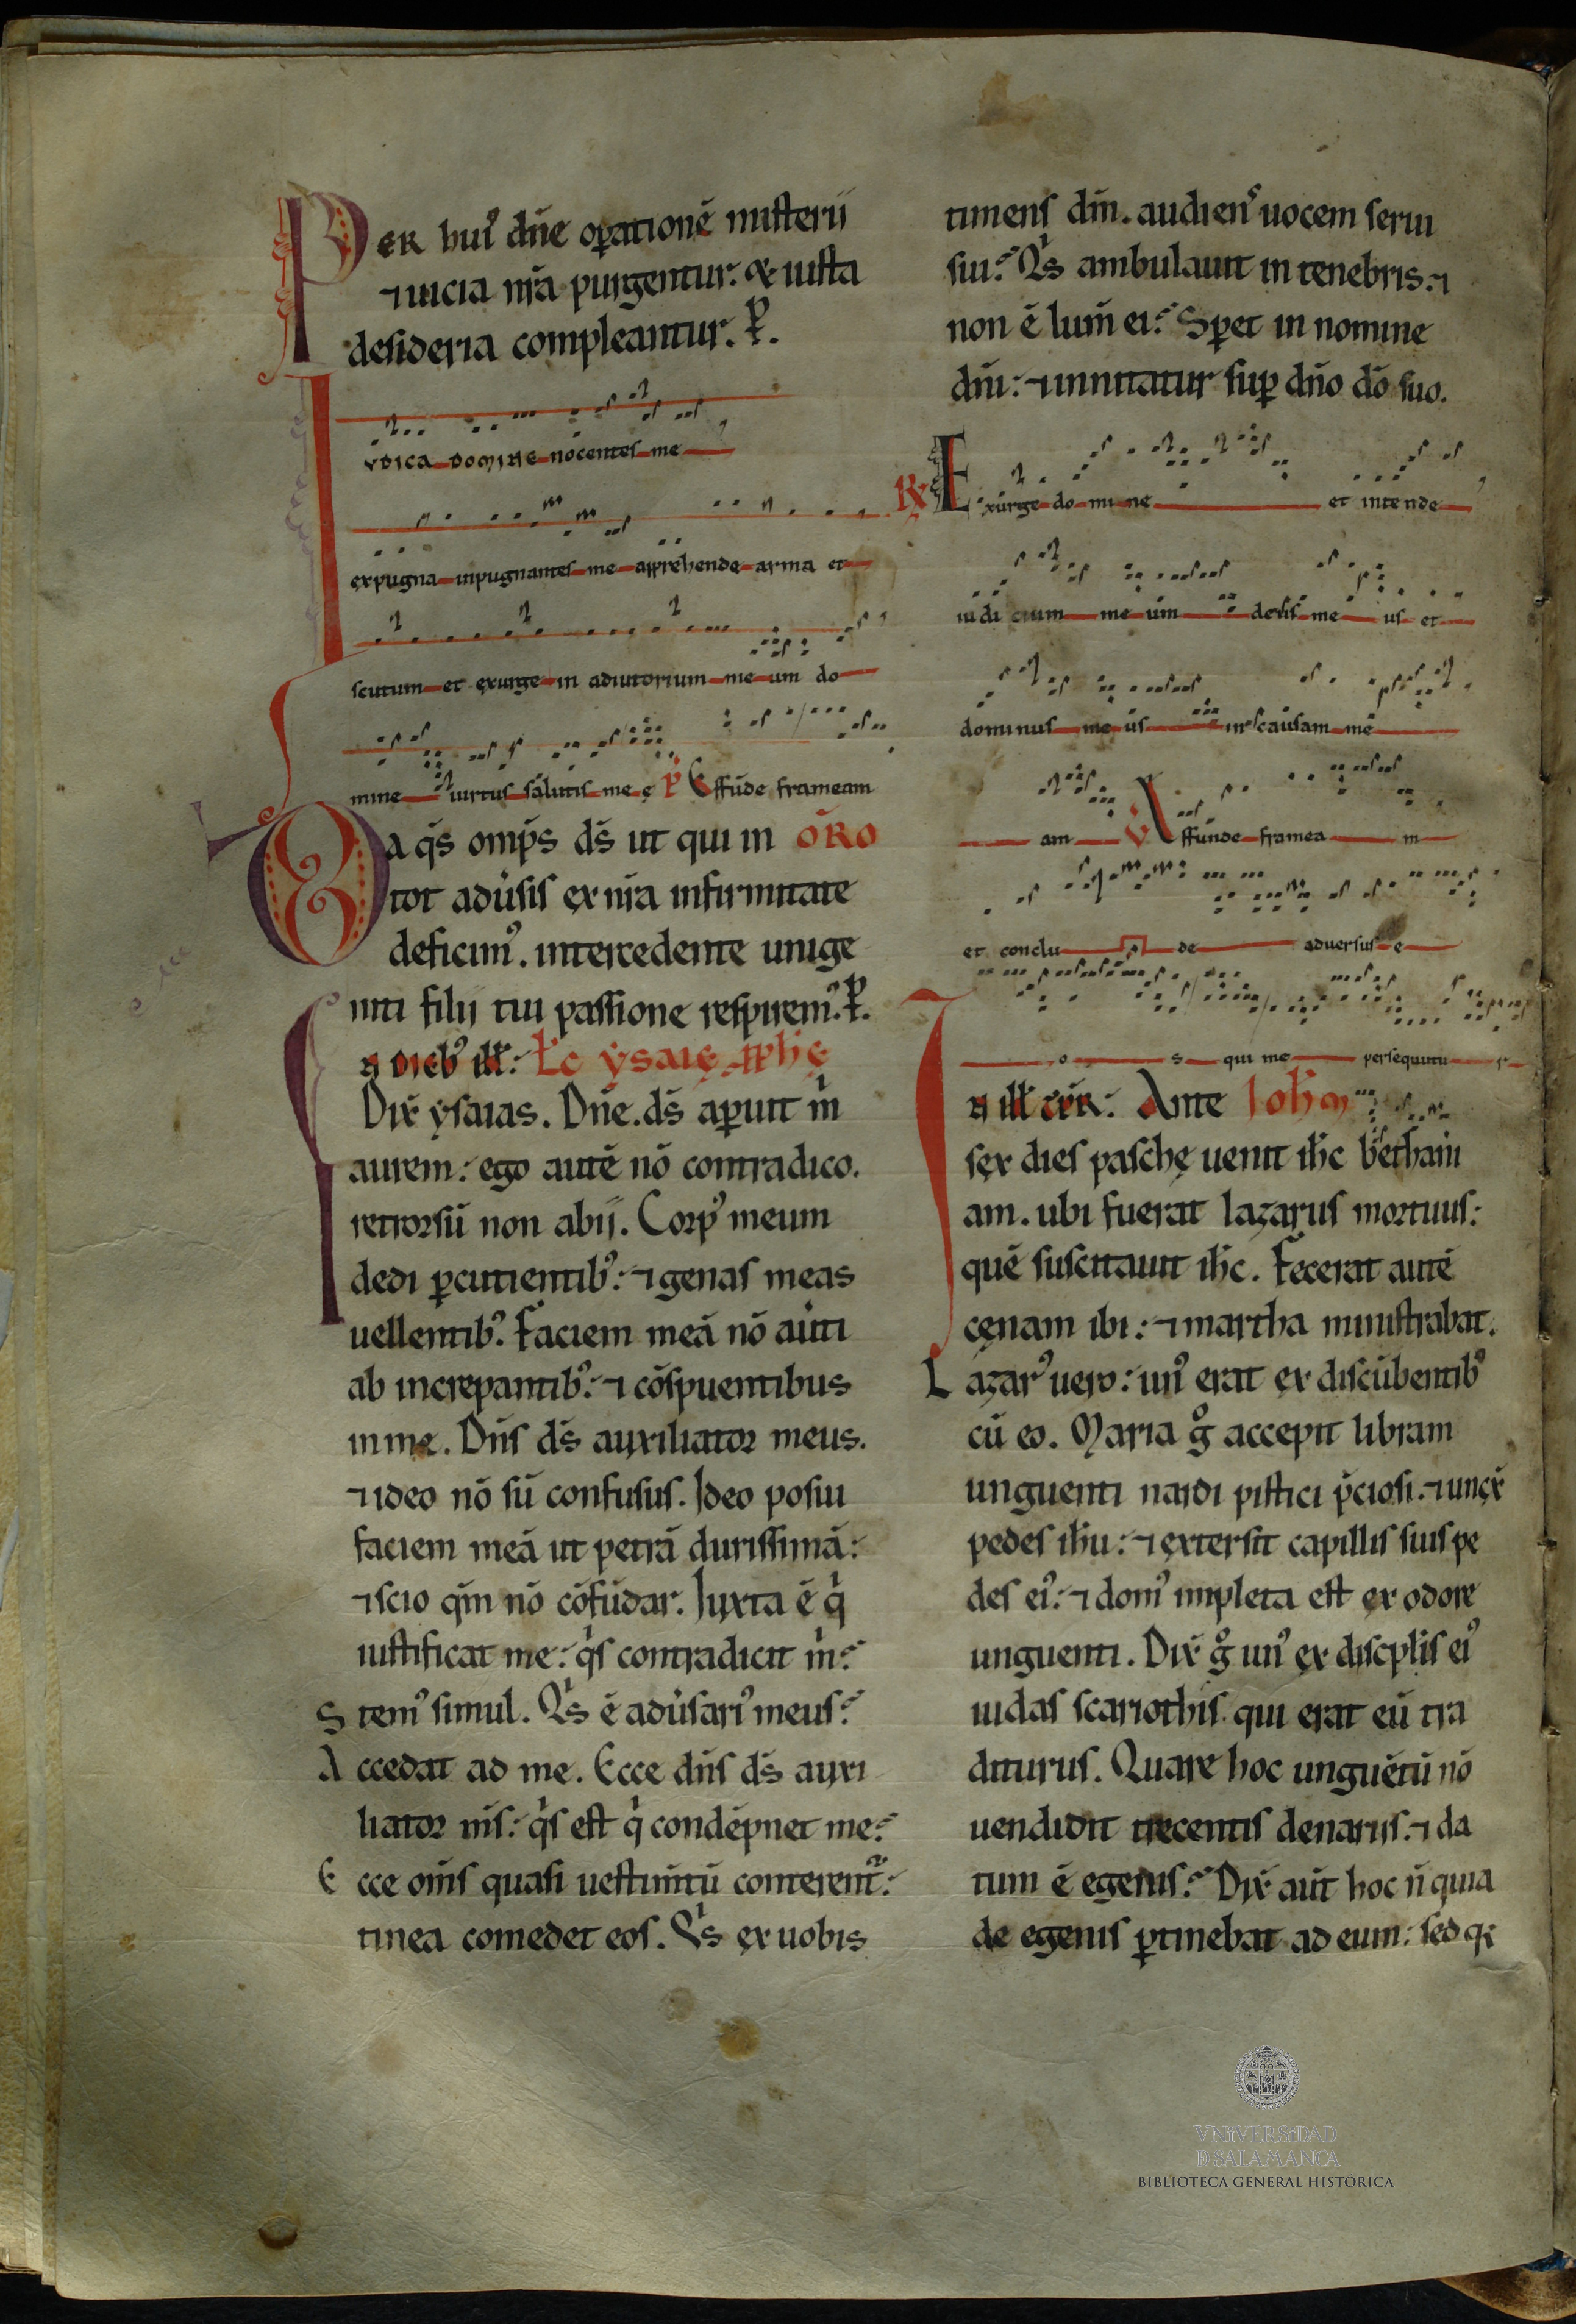 PER hui᷒ dn̄e oꝑationē misterii
⁊ uicia nr̄a purgentur. & iusta
desideria compleantur. P̱.
IVDICA DOMINE nocentes me
expugna inpugnantes me apprehende arma et
scutum et exurge in adiutorium me um do
mine uirtus salutis me ę P̄ Effunde frameam
DA q̄s omp̄s ds̄ ut qui in ORO
tot adūsis ex nr̄a infirmitate
deficim᷒. intercedente unige
niti filii tui passione respirem᷒. P̱.
IN DIEB᷒ ill̄: Lc̄ ysaię pph̄ę
Dix̄ ysaias. Dn̄e. ds̄ aꝑuit m̄
aurem: ego autē nō contradico.
retrorsū non abii. Corp᷒ meum
dedi ꝑcutientib᷒: ⁊ genas meas
uellentib᷒. Faciem meā nō aūti
ab increpantib᷒: ⁊ cōspuentibus
in me. Dn̄s ds̄ auxiliator meus.
⁊ ideo nō sū confusus. Ideo posui
faciem meā ut petrā durissimā:
⁊ scio qm̄ nō cōfūdar. Iuxta ē q̄
iustificat me: q̄s contradicit m̄:
Stem᷒ simul. Qs̄ ē adūsari᷒ meus:
Accedat ad me. Ecce dn̄s ds̄ auxi
liator m̄s: q̄s est q̄ condēpnet me:
Ecce om̄s quasi uestim̄tū conterent᷒:
tinea comedet eos. Qs̄ ex uobis
timens dm̄. audien᷒ uocem serui
sui: Qs̄ ambulauit in tenebris. ⁊
non ē lum̄ ei: Sꝑet in nomine
dn̄i: ⁊ innitatur suꝑ dn̄o dō suo.
R̄ Exurge do mi ne et intende
iudi cium me um deus me us et
dominus me us in causam me
am V̄ Effunde framea m
et conclu de aduersus e
o s qui me persequutu r
IN ill̄ T̄P̄R: Ante Ioh̄m
sex dies paschę uenit ih̄c bethani
am. ubi fuerat lazarus mortuus:
quē suscitauit ih̄c. Fecerat autē
cęnam ibi: ⁊ martha ministrabat.
Lazar᷒ uero: un᷒ erat ex discūbentib᷒
cū eo. Maria g̊ accepit libram
unguenti nardi pistici p̄ciosi. ⁊ unx̄
pedes ih̄u: ⁊ extersit capillis suis pe
des ei᷒: ⁊ dom᷒ impleta est ex odore
unguenti. Dix̄ g̊ un᷒ ex discpl̄is ei᷒
iudas scariothis. qui erat eū tra
diturus. Quare hoc unguētū nō
uendidit trecentis denariis. ⁊ da
tum ē egenis: Dix̄ aūt hoc n̄ quia
de egenis ꝑtinebat ad eum: sed q̄
VNiVERSiDAD
D SALAMANCA
BIBLIOTECA GENERAL HISTÓRICA